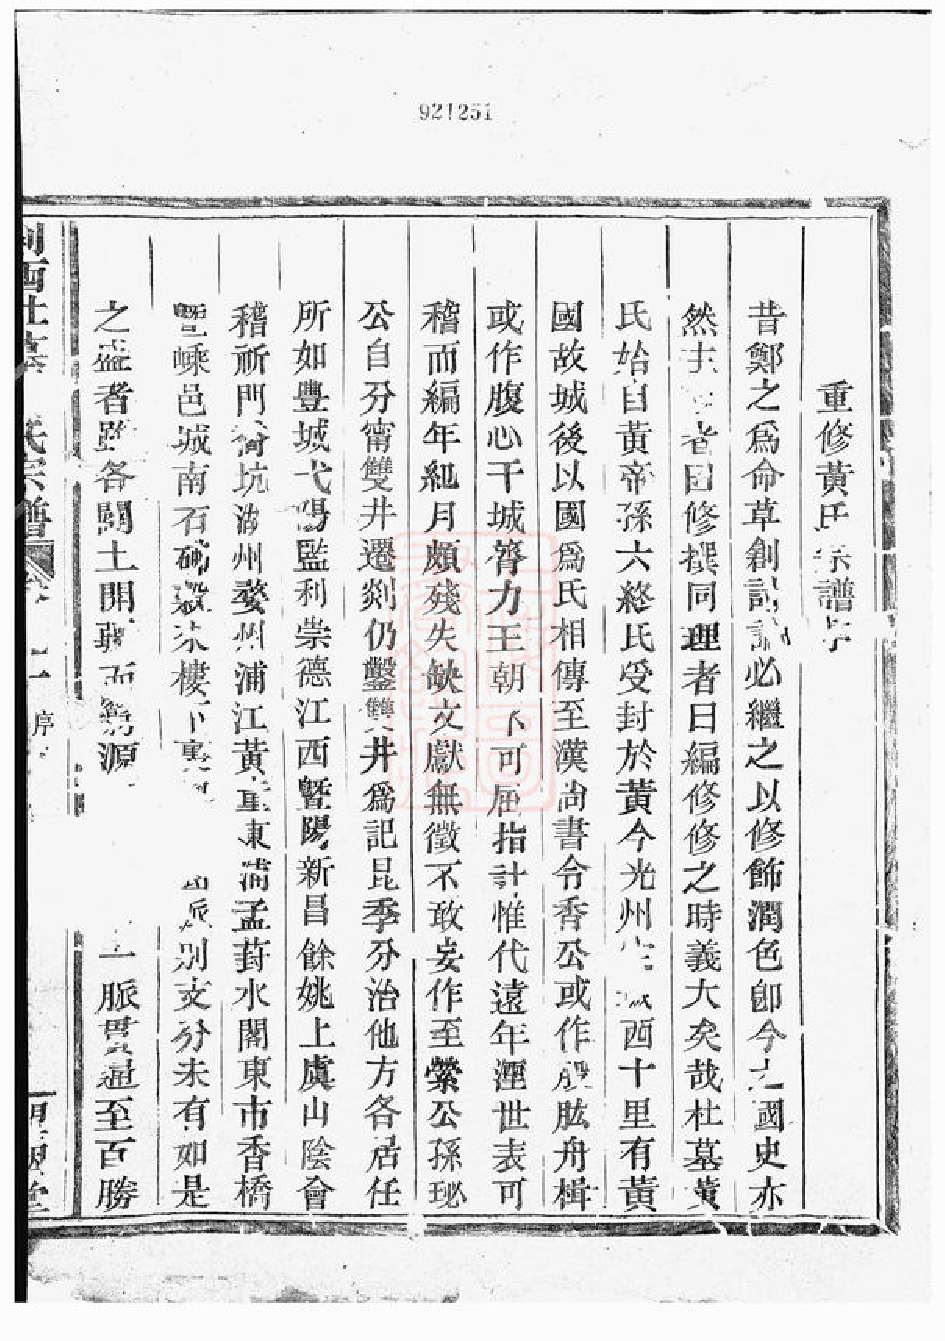 921251
重修黃氏宗譜序
昔鄭之爲命草創討論必繼之以修飾潤色卽今之國史亦
然夫者因修撰同理者曰編修修之時義大矣哉杜墓黃
氏始自黃帝孫六終氏受封於黃今光州城西十里有黃
國故城後以國爲氏相傳至漢尙書令香公或作股肱舟楫
或作腹心干城膂力王朝不可屈指計惟代遠年湮世表可
稽而編年紀月頗殘失缺文獻無徵不敢妄作至縈公孫玭
公自分甯雙井遷剡仍鑿雙井爲記昆季分治他方各居任
所如豐城弋陽監利崇德江西暨陽新昌餘姚上虞山陰會
稽祈門坑湖州婺州浦江黃東浦孟葑水閣東市香橋
暨嵊邑城南石樓下派別支分未有如是
之盛者雖各闢土開疆而源一脈貫通至百勝
氏宗譜
序
堂